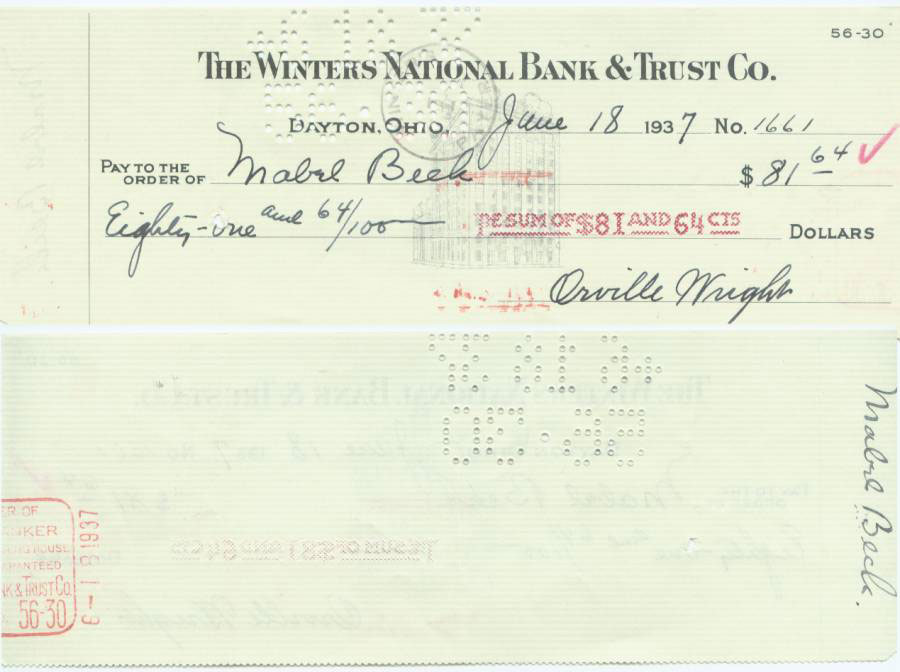 56-30
THE WINTERS NATIONAL BANK & TRUST CO.
DAYTON, OHIO, June 18 1937 No. 1661
PAY TO THE
ORDER OF Mabel Beck $ 81 64
Eighty-one and 64/100 THE SUM OF $81 AND 64 CTS DOLLARS
Orville Wright
Mabel Beck.
ER OF
ANKER
HOUSE
RANTEED
NK & TRUST CO.
56-30
6-18 1937